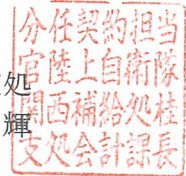 分任契約担当
官陸上自衛隊
関西補給処桂
支処会計課長
処
輝